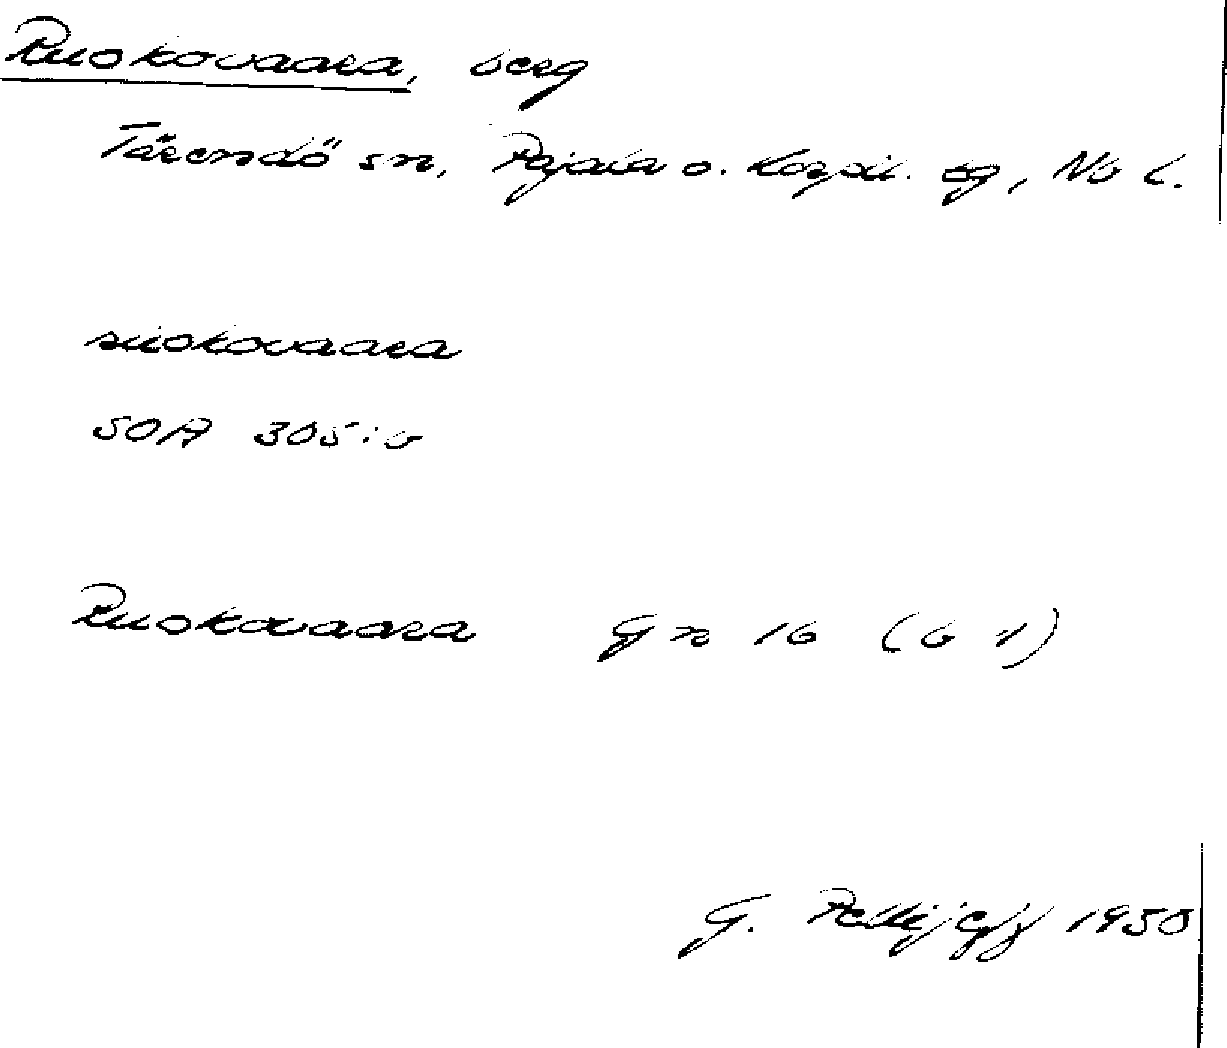 Ruokovaara, berg
Tärendö sn, Pajala o. Korpil. tg, Nb l.
ruokovaara
SOA 305:b
Ruokovaara Gn 16 (b 1)
G. Pellijeff 1950